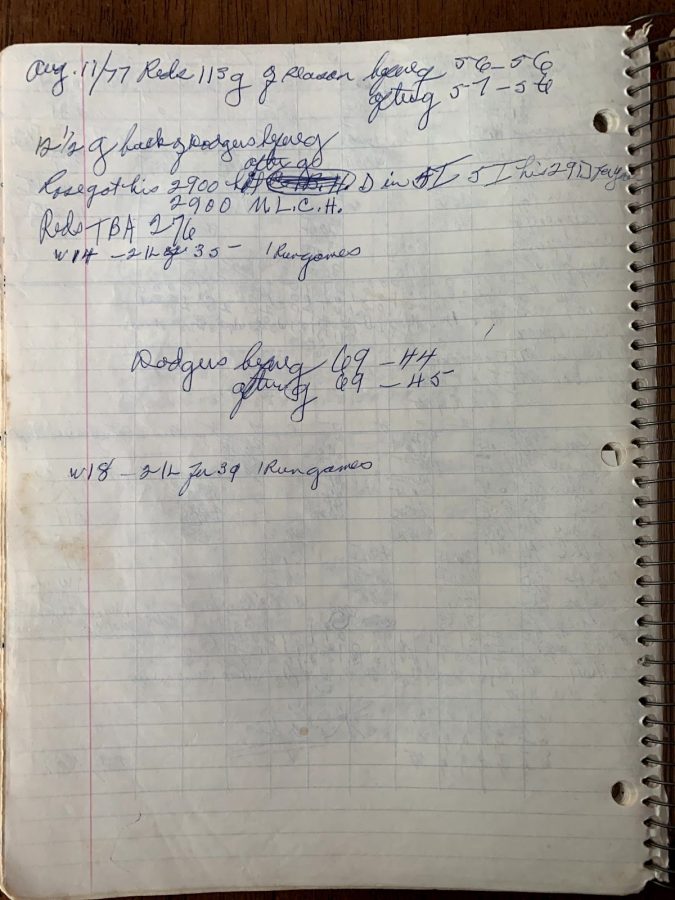 Aug. 11/77 Reds 113 g of season before g 56-56
after g 57-56
12 1/2 g back of Dodgers before g
after g
Rose got his 2900 D in 5 I his 29 D
2900 M.L.C.H.
Reds TBA 276
W14 - 21L 35 1 Run games
Dodgers before g 69-44
after g 69-45
W18 - 21L 39 1 Run games